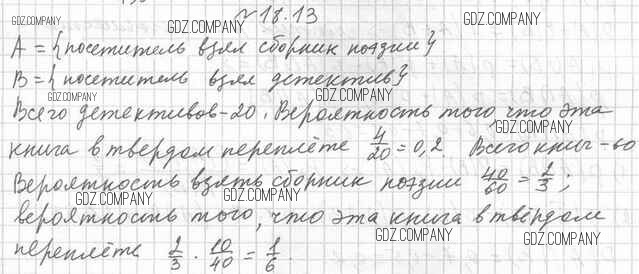 №18.13
A = {посетитель взял сборник поэзии}
B = {посетитель взял детектив}
Всего детективов - 20. Вероятность того что эта
книга в твердом переплёте 4/20 = 0,2. Всего книг - 60
Вероятность взять сборник поэзии 40/60 = 2/3;
вероятность того, что эта книга в твёрдом
переплёте 2/3 · 10/40 = 1/6.
GDZ.COMPANY
GDZ.COMPANY
GDZ.COMPANY
GDZ.COMPANY
GDZ.COMPANY
GDZ.COMPANY
GDZ.COMPANY
GDZ.COMPANY
GDZ.COMPANY
GDZ.COMPANY